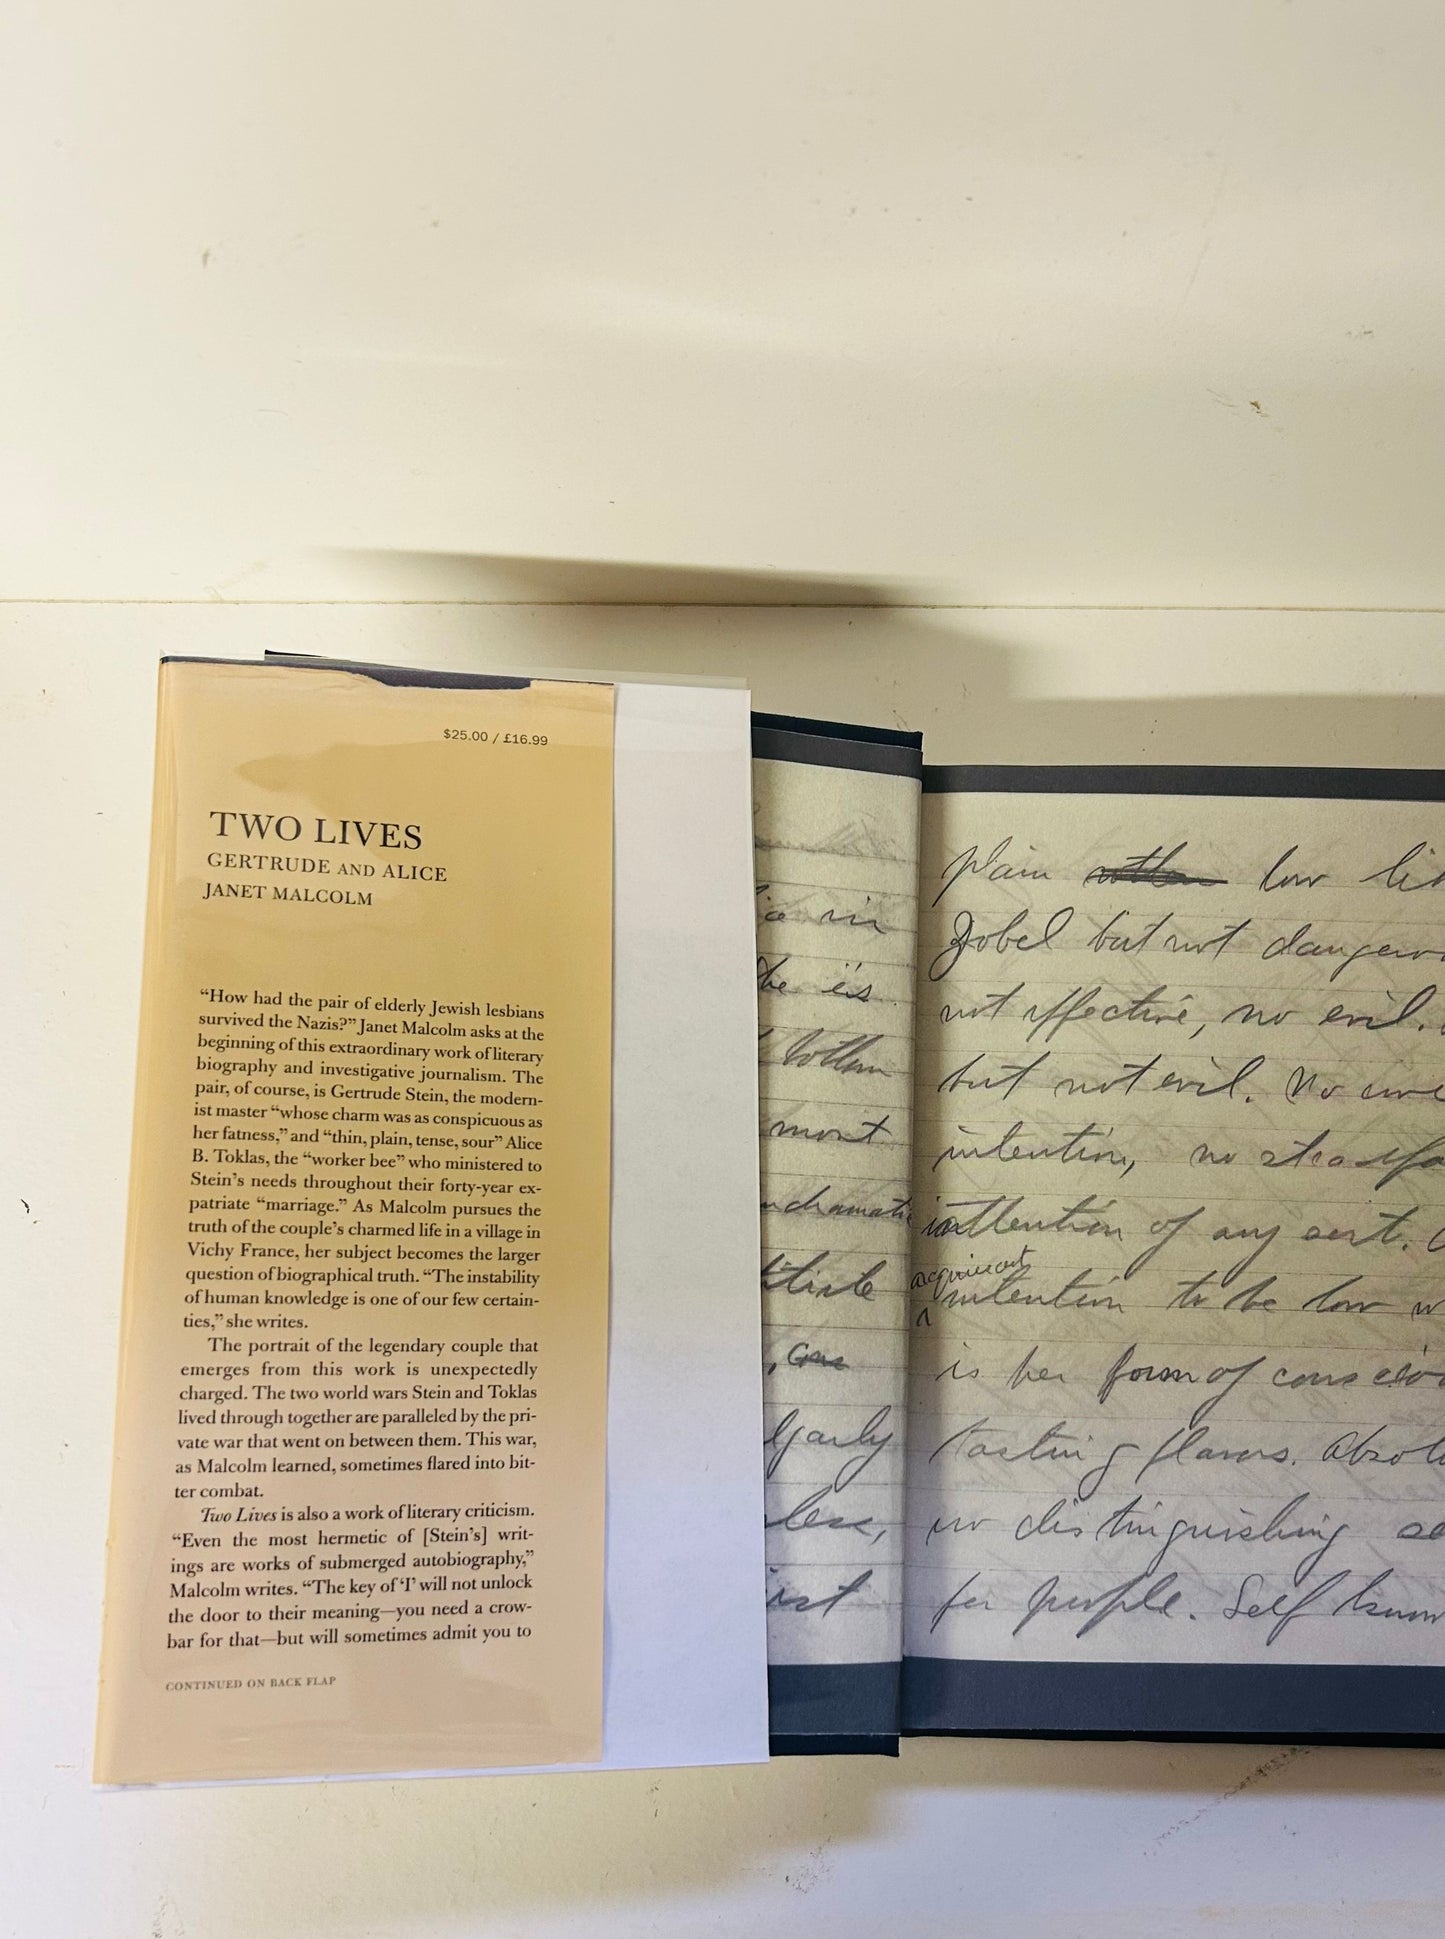 $25.00 / £16.99
TWO LIVES
GERTRUDE AND ALICE
JANET MALCOLM
“How had the pair of elderly Jewish lesbians
survived the Nazis?” Janet Malcolm asks at the
beginning of this extraordinary work of literary
biography and investigative journalism. The
pair, of course, is Gertrude Stein, the modern-
ist master “whose charm was as conspicuous as
her fatness,” and “thin, plain, tense, sour” Alice
B. Toklas, the “worker bee” who ministered to
Stein’s needs throughout their forty-year ex-
patriate “marriage.” As Malcolm pursues the
truth of the couple’s charmed life in a village in
Vichy France, her subject becomes the larger
question of biographical truth. “The instability
of human knowledge is one of our few certain-
ties,” she writes.
The portrait of the legendary couple that
emerges from this work is unexpectedly
charged. The two world wars Stein and Toklas
lived through together are paralleled by the pri-
vate war that went on between them. This war,
as Malcolm learned, sometimes flared into bit-
ter combat.
Two Lives is also a work of literary criticism.
“Even the most hermetic of [Stein’s] writ-
ings are works of submerged autobiography,”
Malcolm writes. “The key of ‘I’ will not unlock
the door to their meaning—you need a crow-
bar for that—but will sometimes admit you to
CONTINUED ON BACK FLAP
in
is
bottom
most
plain low
but not
not effective, no evil.
but not evil. No
intention, no
intention of any sort.
intention to be low
is her form of
tasting flavors.
no distinguishing
for people. Self